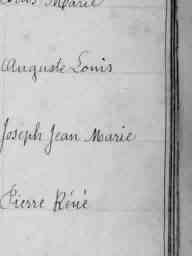 Marie
Auguste Louis
Joseph Jean Marie
Pierre Réné